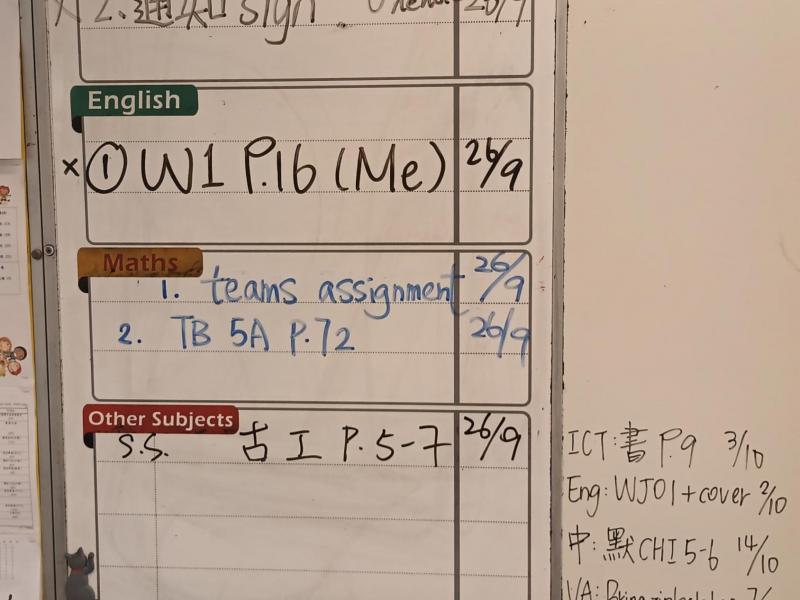 x 2. 通知 sign. 26/9
English
x ① W1 P.16 (Me) 26/9
Maths
1. teams assignment 26/9
2. TB 5A P.72 26/9
Other Subjects
S.S. 古工 P.5-7 26/9
ICT: 書 P.9 3/10
Eng: WJ01+cover 2/10
中: 默 CHI 5-6 14/10
VA: